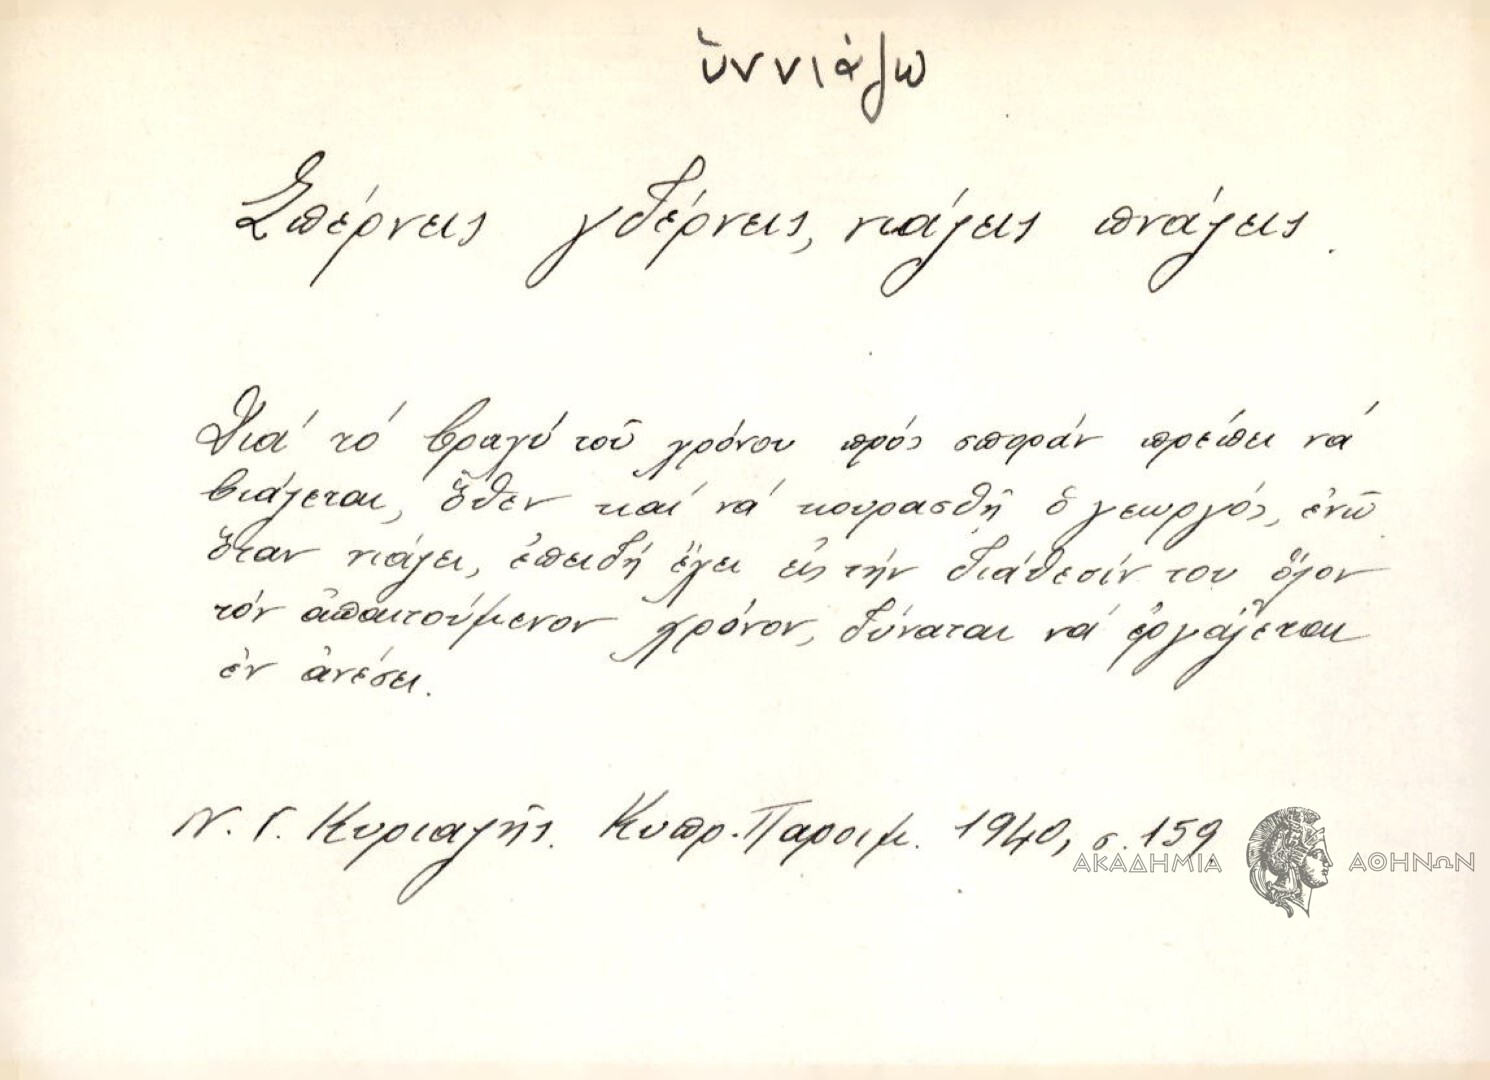 ὑννιάζω
Σπέρνεις γδέρνεις, νιάζεις πνάζεις.
Διά τό βραχύ τοῦ χρόνου πρός σποράν πρέπει νά
βιάζεται, ὅθεν καί νά κουρασθῇ ὁ γεωργός, ἐνῷ
ὅταν νιάζει, ἐπειδή ἔχει εἰς τήν διάθεσίν του ὅλον
τόν ἀπαιτούμενον χρόνον, δύναται νά ἐργάζεται
ἐν ἀνέσει.
Ν. Γ. Κυριαζῆς. Κυπρ. Παροιμ. 1940, σ. 159
ΑΚΑΔΗΜΙΑ ΑΘΗΝΩΝ